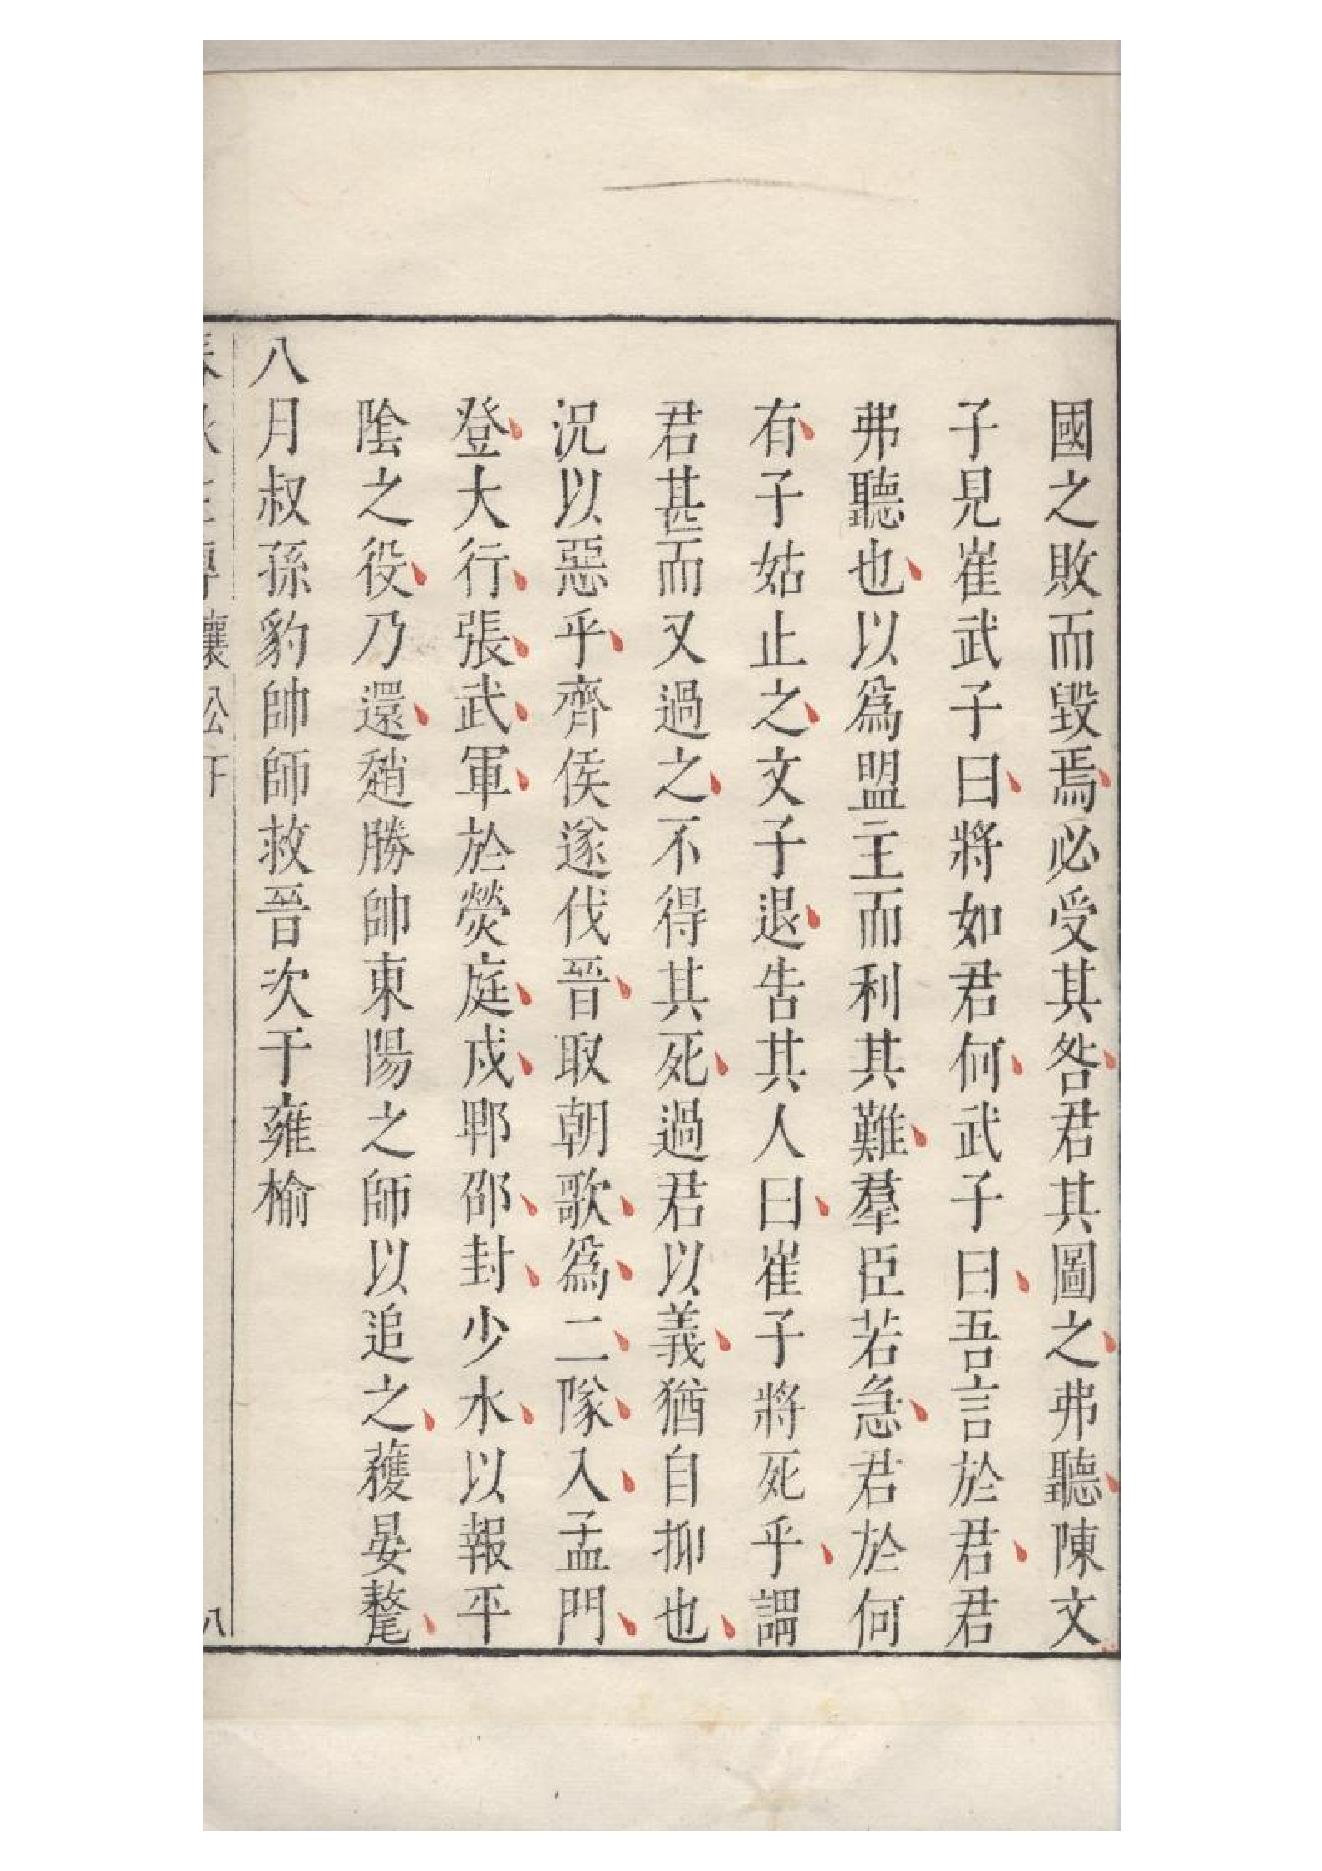 國之敗而毀焉必受其咎君其圖之弗聽陳文
子見崔武子曰將如君何武子曰吾言於君君
弗聽也以爲盟主而利其難羣臣若急君於何
有子姑止之文子退告其人曰崔子將死乎謂
君甚而又過之不得其死過君以義猶自抑也
況以惡乎齊侯遂伐晉取朝歌爲二隊入孟門
登大行張武軍於熒庭戍郫邵封少水以報平
隂之役乃還趙勝帥東陽之師以追之獲晏氂
八月叔孫豹帥師救晉次于雍榆
襄公下 八